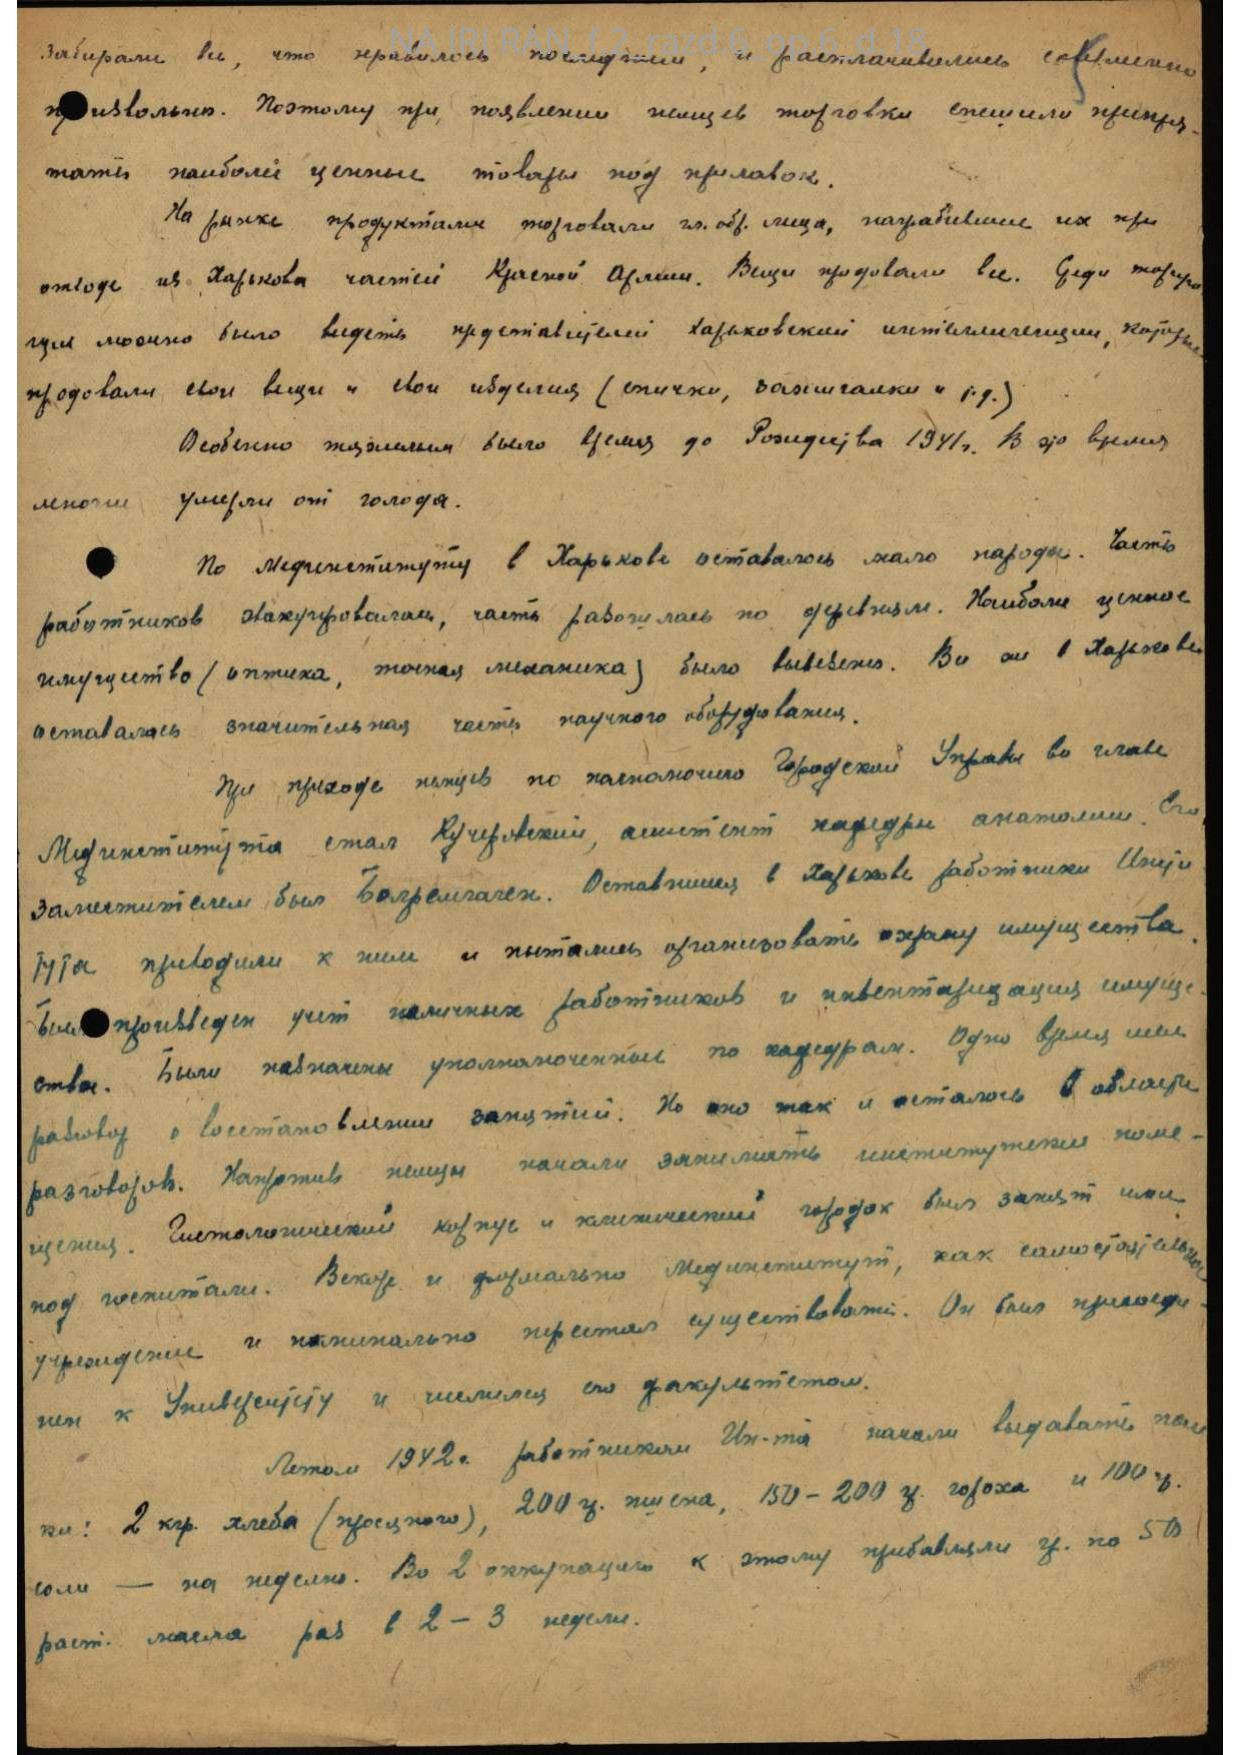 NA IRI RAN f.2 razd.6 op.6 d.18
Забирали все, что нравилось последним, и расплачивались совершенно
произвольно. Поэтому при появлении немцев торговки спешили припря-
тать наиболее ценные товары под прилавок.
На рынке продуктами торговали гл. обр. лица, награбившие их при
отходе из Харькова частей Красной Армии. Вещи продовали все. Среди торгую
щих можно было видеть представителей харьковской интеллигенции, которые
продовали свои вещи и свои изделия (спички, зажигалки и т.д.)
Особенно тяжелым было время до Рождества 1941г. В это время
многие умерли от голода.
По Мединституту в Харькове оставалось мало народы. Часть
работников эвакуировалась, часть разошлась по деревням. Наиболее ценное
имущество (оптика, точная механика) было вывезено. Все же в Харькове
оставалась значительная часть научного оборудования.
При приходе немцев по назначению Городской Управы во главе
Мединститута стал Кучеровский, ассистент кафедры анатомии. Его
заместителем был. Оставшиеся в Харькове работники Инсти
тута приходили к ним и пытались организовать охрану имущества.
Был произведен учет наличных работников и инвентаризация имуще-
ства. Были назначены уполномоченные по кафедрам. Одно время шел
разговор о восстановлении занятий. Но оно так и осталось в области
разговоров. Напротив немцы начали занимать институтские поме-
щения. Гистологический корпус и клинический городок был занят ими
под госпитали. Вскоре и формально Мединститут, как самостоятельное
учреждение и номинально перестал существовать. Он был присоеди-
нен к Университету и числился его факультетом.
Летом 1942г. работникам Ин-та начали выдавать пай
ки: 2 кгр. хлеба (просяного), 200 гр. пшена, 150-200 гр. гороха и 100 гр.
соли — на неделю. Во 2 оккупацию к этому прибавляли гр. по 50
раст. масла раз в 2-3 недели.